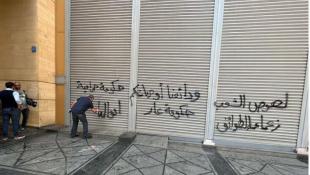 لصوص الشعب
زعماء الطوائف
ودائعنا أو دمائكم
حكومة عار
حكومة حرامية